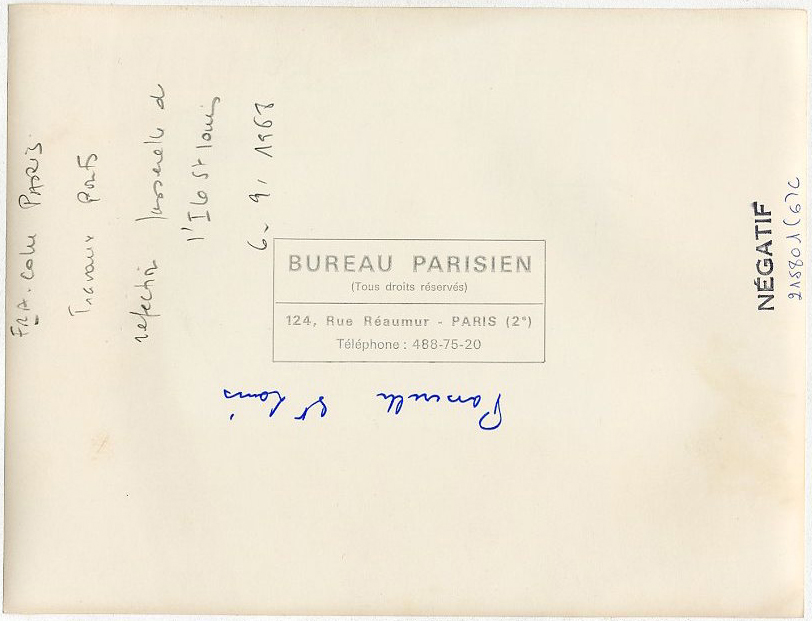 FRA. Colu PARIS.
Travaux Ponts
refection Passerelle de
l'Ile St Louis
6. 9. 1968
BUREAU PARISIEN
(Tous droits réservés)
124, Rue Réaumur - PARIS (2e)
Téléphone : 488-75-20
Passerelle St Louis
NÉGATIF
215801(67C